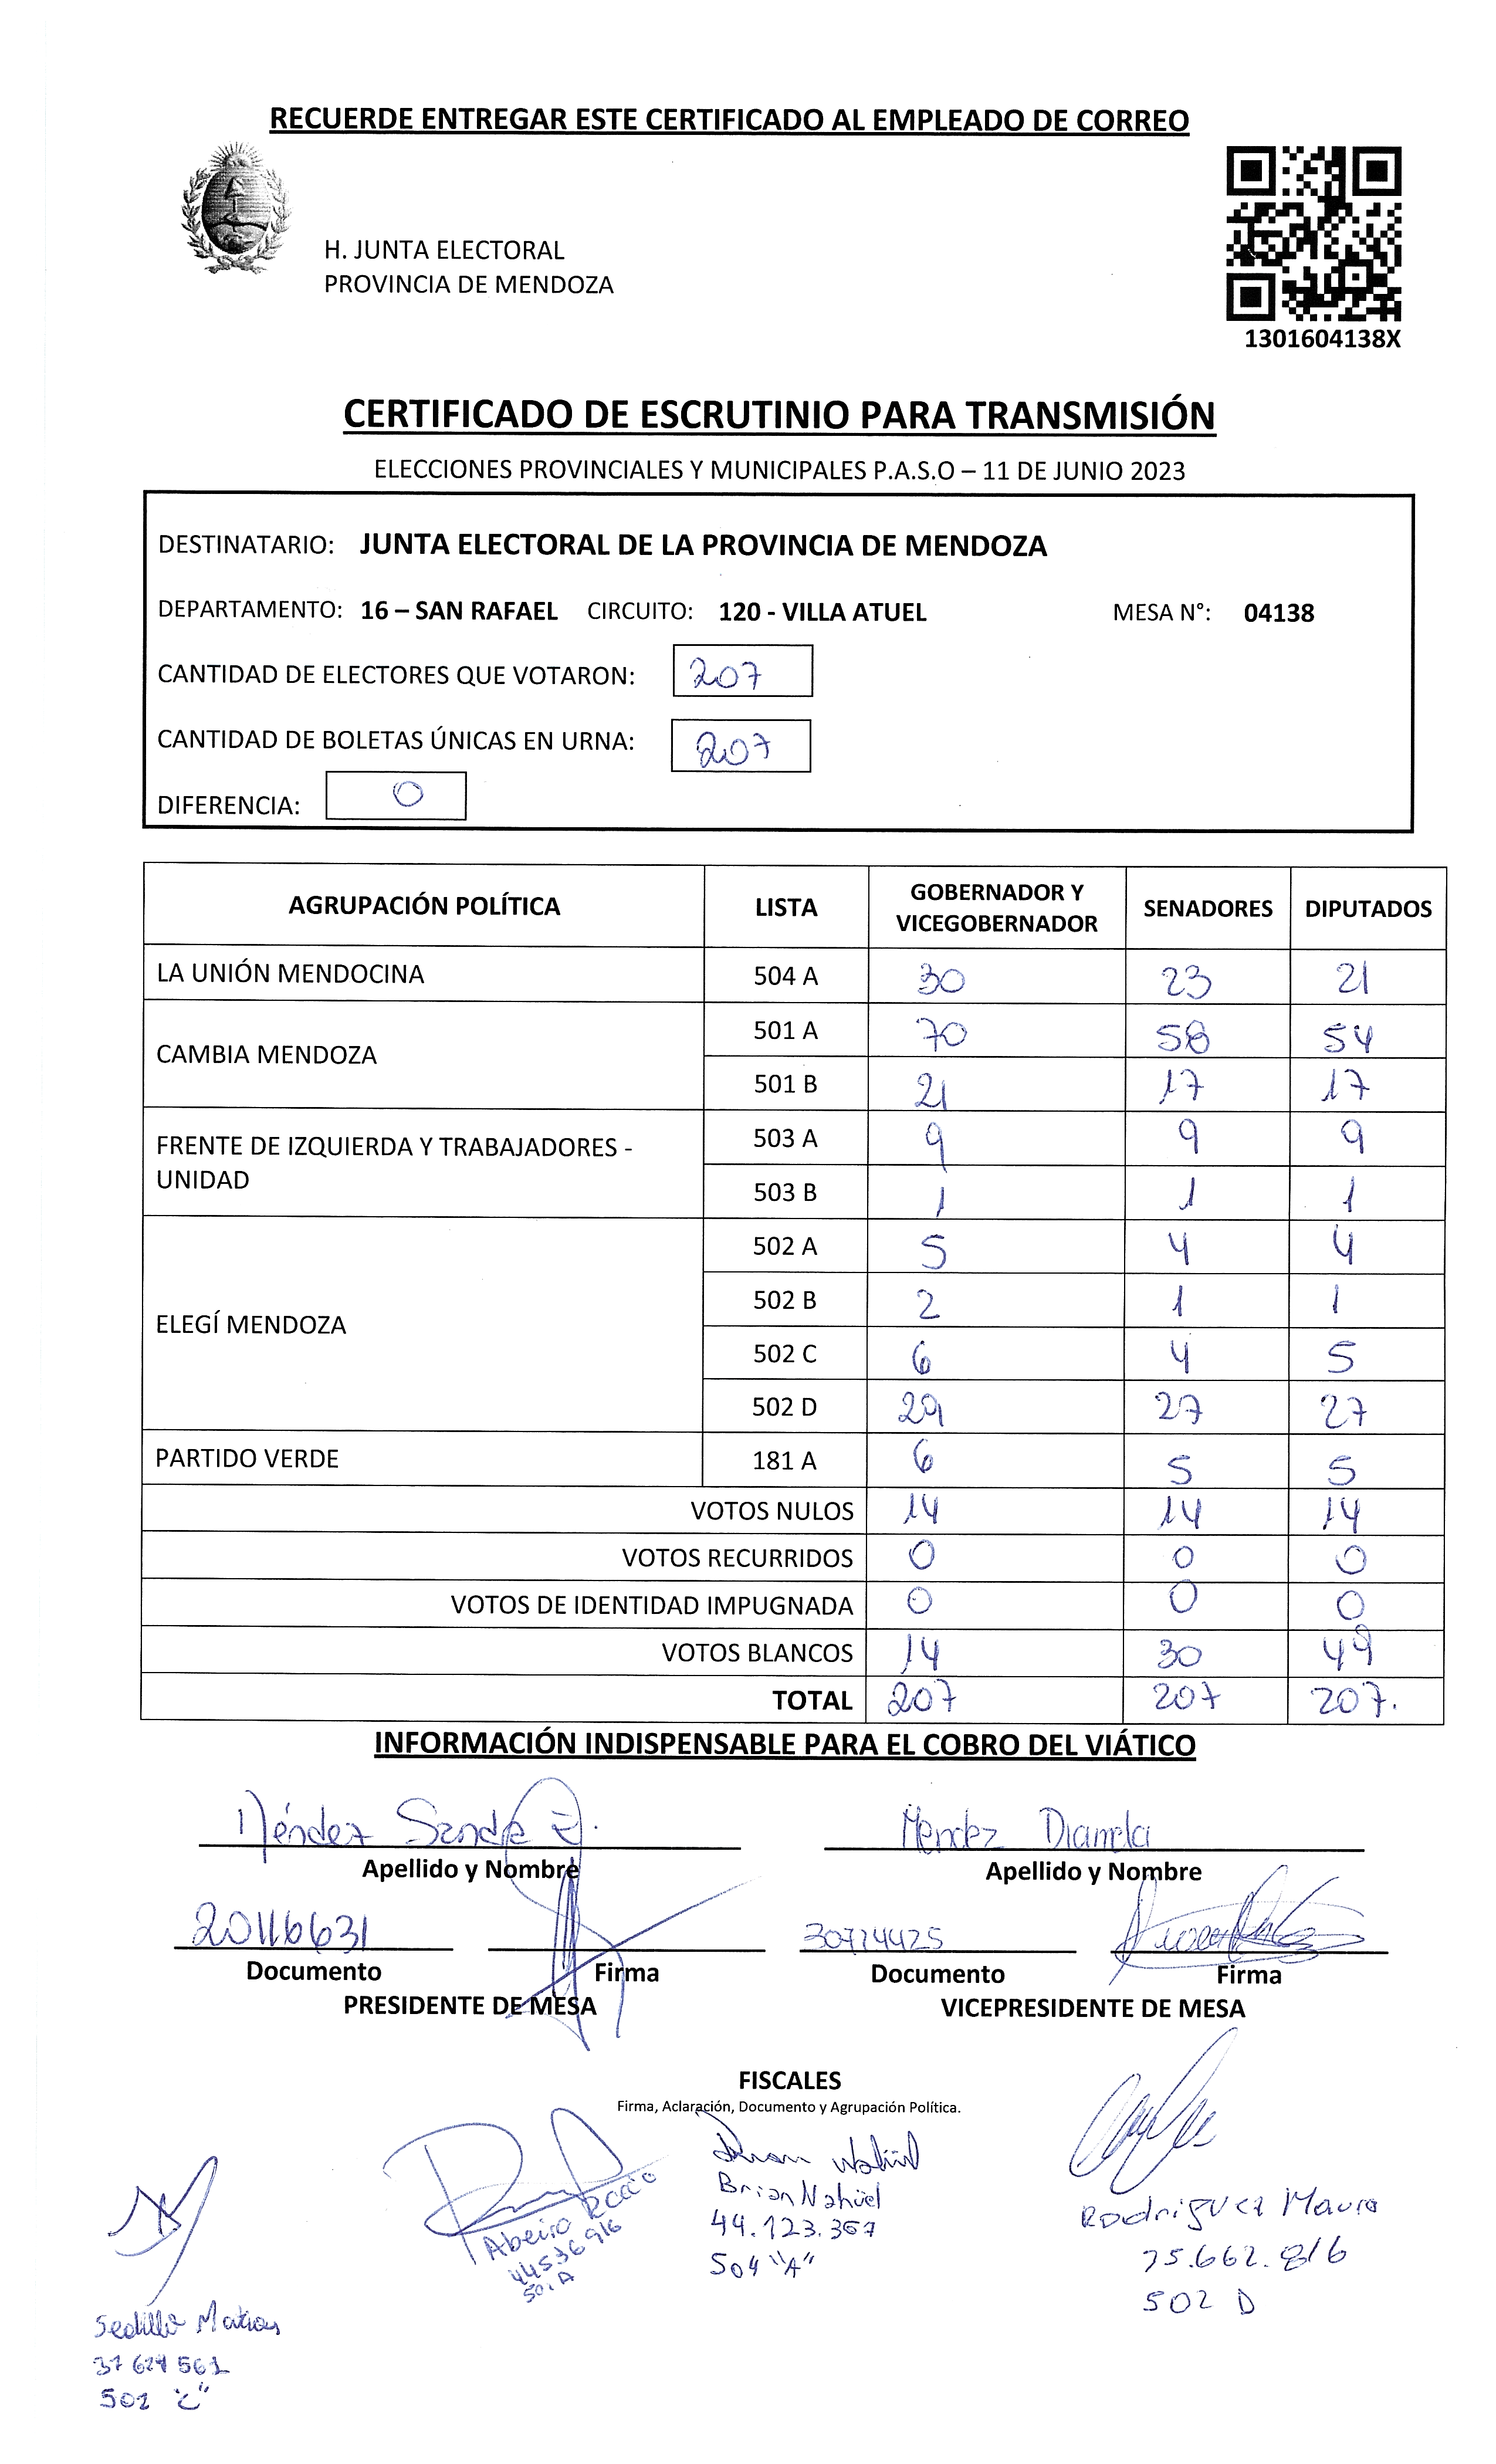 RECUERDE ENTREGAR ESTE CERTIFICADO AL EMPLEADO DE CORREO
H. JUNTA ELECTORAL
PROVINCIA DE MENDOZA
1301604138X
CERTIFICADO DE ESCRUTINIO PARA TRANSMISIÓN
ELECCIONES PROVINCIALES Y MUNICIPALES P.A.S.O – 11 DE JUNIO 2023
DESTINATARIO: JUNTA ELECTORAL DE LA PROVINCIA DE MENDOZA
DEPARTAMENTO: 16 – SAN RAFAEL CIRCUITO: 120 - VILLA ATUEL MESA N°: 04138
CANTIDAD DE ELECTORES QUE VOTARON: 207
CANTIDAD DE BOLETAS ÚNICAS EN URNA: 207
DIFERENCIA: 0
AGRUPACIÓN POLÍTICA LISTA GOBERNADOR Y VICEGOBERNADOR SENADORES DIPUTADOS
LA UNIÓN MENDOCINA 504 A 30 23 21
CAMBIA MENDOZA 501 A 70 58 54
501 B 21 17 17
FRENTE DE IZQUIERDA Y TRABAJADORES - UNIDAD 503 A 9 9 9
503 B 1 1 1
ELEGÍ MENDOZA 502 A 5 4 4
502 B 2 1 1
502 C 6 4 5
502 D 29 27 27
PARTIDO VERDE 181 A 6 5 5
VOTOS NULOS 14 14 14
VOTOS RECURRIDOS 0 0 0
VOTOS DE IDENTIDAD IMPUGNADA 0 0 0
VOTOS BLANCOS 14 30 49
TOTAL 207 207 207.
INFORMACIÓN INDISPENSABLE PARA EL COBRO DEL VIÁTICO
Méndez Mendez Diamela
Apellido y Nombre Apellido y Nombre
20116631 30724425
Documento Firma Documento Firma
PRESIDENTE DE MESA VICEPRESIDENTE DE MESA
FISCALES
Firma, Aclaración, Documento y Agrupación Política.
Abeiro Rocio
44536916
501A
Brian Nahüel
44.123.367
504 "A"
Rodriguez Mauro
502 D
Sedillo Matias
37 624 561
502 "C"